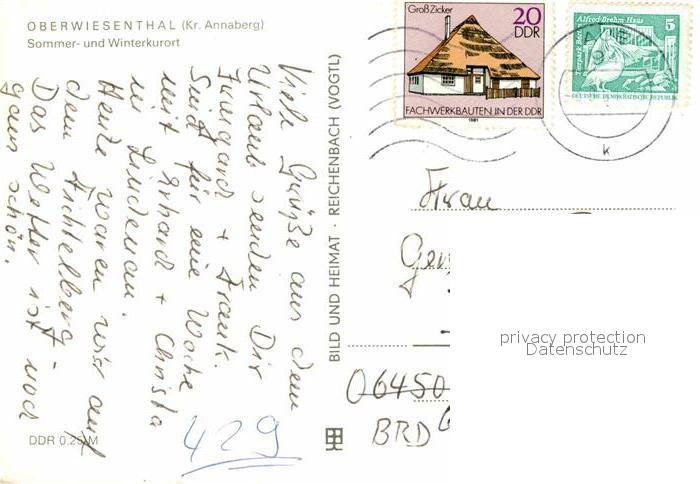 OBERWIESENTHAL (Kr. Annaberg)
Sommer- und Winterkurort
Viele Grüße aus dem
Urlaub senden Dir
Irmgard + Frank.
Sind für eine Woche
mit Erhard + Christa
in Lindenau.
Heute waren wir auf
dem Fichtelberg.
Das Wetter ist noch
ganz schön.
DDR 0.25 M
429
BILD UND HEIMAT · REICHENBACH (VOGTL)
Groß Zicker
20
DDR
FACHWERKBAUTEN IN DER DDR
1981
Alfred Brehm Haus
5
Tierpark Berlin
DEUTSCHE DEMOKRATISCHE REPUBLIK
k
Frau
Ger
06450
BRD
privacy protection
Datenschutz